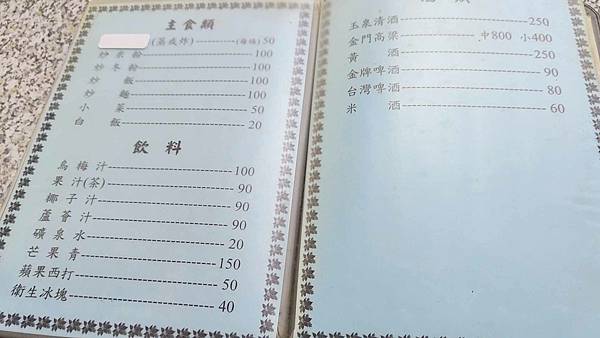 主食類
(蒸或炸)----------(每個)50
炒米粉----------100
炒冬粉----------100
炒飯----------100
炒麵----------100
小菜----------50
白飯----------20
飲料
烏梅汁----------100
果汁(茶)----------90
椰子汁----------90
蘆薈汁----------90
礦泉水----------20
芒果青----------150
蘋果西打----------50
衛生冰塊----------40
玉泉清酒----------250
金門高梁----------中800 小400
黃酒----------250
金牌啤酒----------90
台灣啤酒----------80
米酒----------60